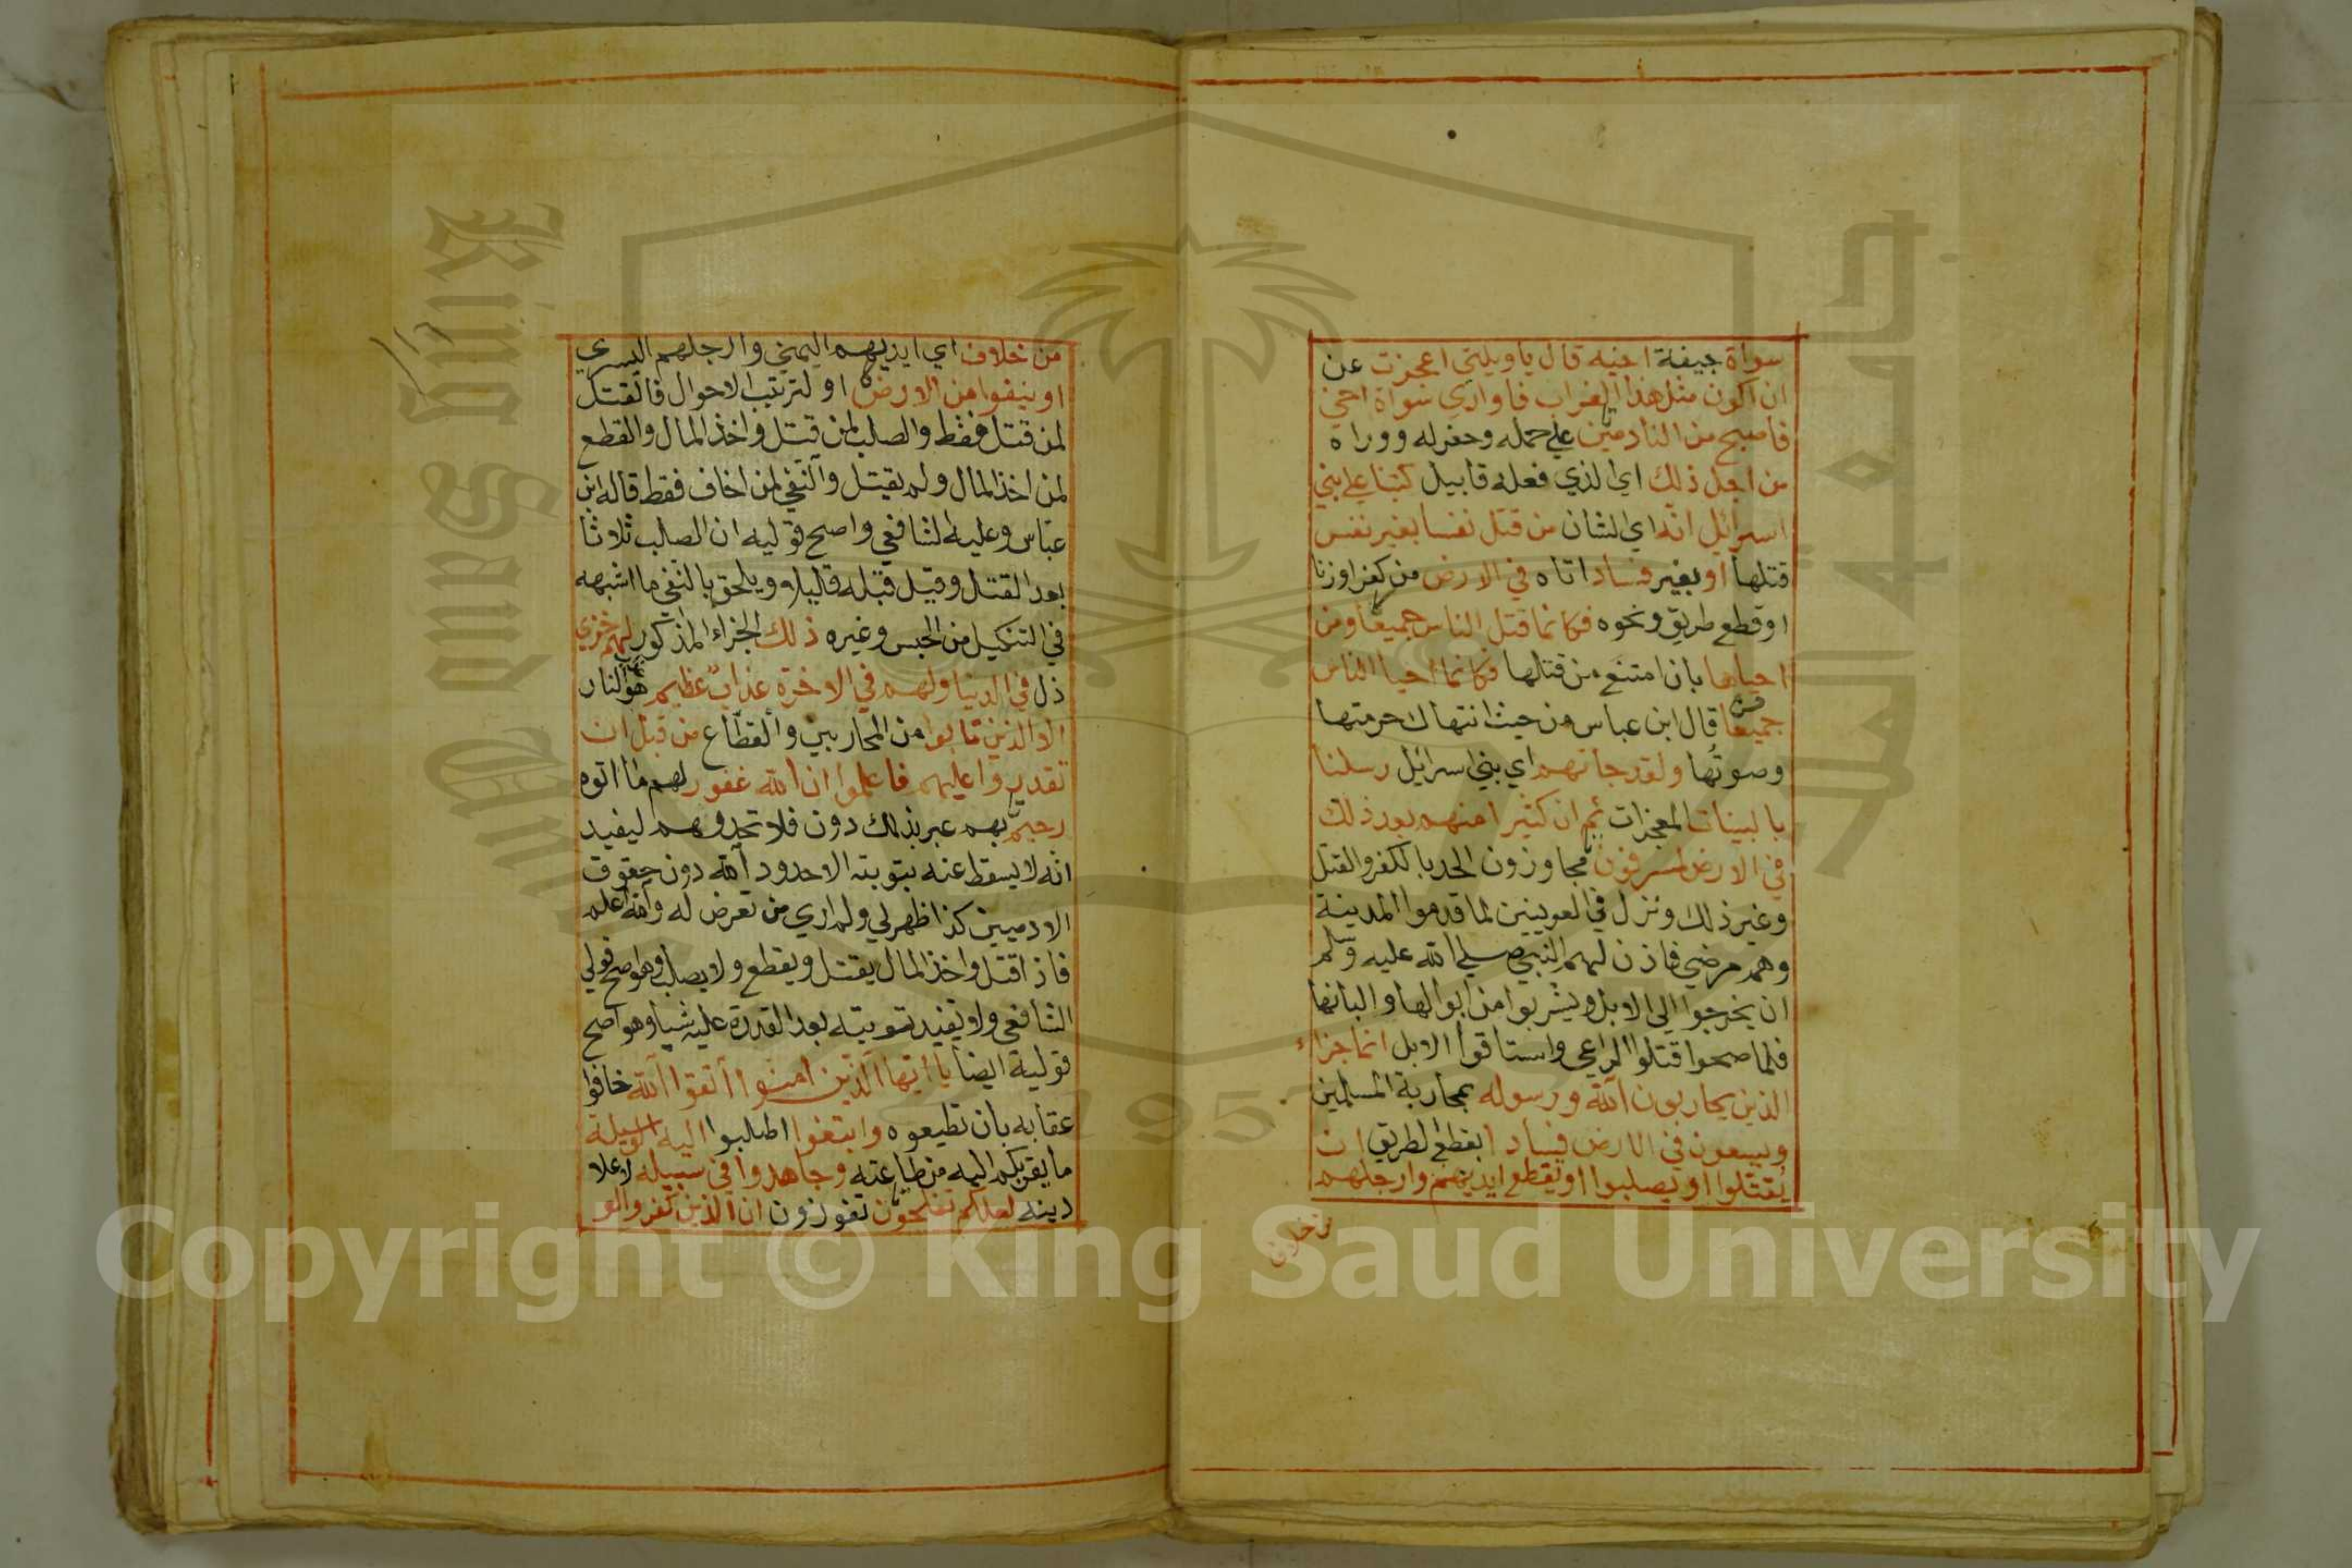 سواة جيفة اخيه قال ياويلتي اعجزت عن
ان اكون مثل هذا الغراب فاواري سواة اخي
فاصبح من النادمين علي حمله وحفرله وواراه
من اجل ذلك اي الذي فعله قابيل كتبنا علي بني
اسرائل انه اي الشان من قتل نفسا بغير نفس
قتلها او بغير فساد اتاه في الارض من كفر اوزنا
اوقطع طريق ونحوه فكانما قتل الناس جميعا ومن
احياها بان امتنع من قتلها فكانما احيا الناس
جميعا قال ابن عباس من حيث انتهاك حرمتها
وصونها ولقد جاتهم اي بني اسرائل رسلنا
بالبينات المعجزات ثم ان كثيرا منهم بعد ذلك
في الارض لمسرفون مجاوزون الحد بالكفر والقتل
وغير ذلك ونزل في العرينين لما قدموا المدينة
وهم مرضي فاذن لهم النبي صلي الله عليه وسلم
ان يخرجوا الي الابل ويشربوا من ابوالها والبانها
فلما صحوا قتلوا الراعي واستاقوا الابل انما جزاء
الذين يحاربون الله ورسوله بمحاربة المسلمين
ويسعون في الارض فسادا بقطع الطريق ان
يقتلوا او يصلبوا او تقطع ايديهم وارجلهم
من خلاف
من خلاف اي ايديهم اليمني وارجلهم اليسري
او ينفوا من الارض او لترتيب الاحوال فالقتل
لمن قتل فقط والصلب لمن قتل واخذ المال والقطع
لمن اخذ المال ولم يقتل والنفي لمن اخاف فقط قاله ابن
عباس وعليه الشافعي واصح قوليه ان الصلب ثلاثا
بعد القتل وقيل قبله قليلا ويلحق بالنفي ما اشبهه
في التنكيل من الحبس وغيره ذلك الجزاء المذكور لهم خزي
ذل في الدنيا ولهم في الاخرة عذاب عظيم هو النار
الا الذين تابوا من المحاربين والقطاع من قبل ان
تقدروا عليهم فاعلموا ان الله غفور لهم ما اتوه
رحيم بهم عبر بذلك دون فلا تحدوهم ليفيد
انه لا يسقط عنه بتوبته الا حدود الله دون حقوق
الادميين كذا ظهرلي ولم اري من تعرض له والله اعلم
فاذا قتل واخذ المال يقتل ويقطع ولا يصلب وهو اصح قولي
الشافعي ولا تفيد توبته بعد القدرة عليه شيا وهو اصح
قولية ايضا يا ايها الذين امنوا اتقوا الله خافوا
عقابه بان تطيعوه وابتغوا اطلبوا اليه الوسيلة
ما يقربكم اليه من طاعته وجاهدوا في سبيله لاعلا
دينه لعلكم تفلحون تفوزون ان الذين كفروا لو
Copyright © King Saud University